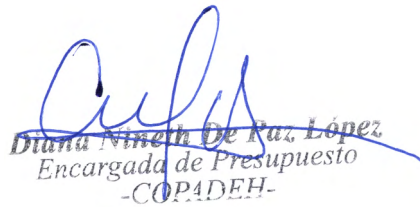 Diana Nineth De Paz López
Encargada de Presupuesto
-COPADEH-